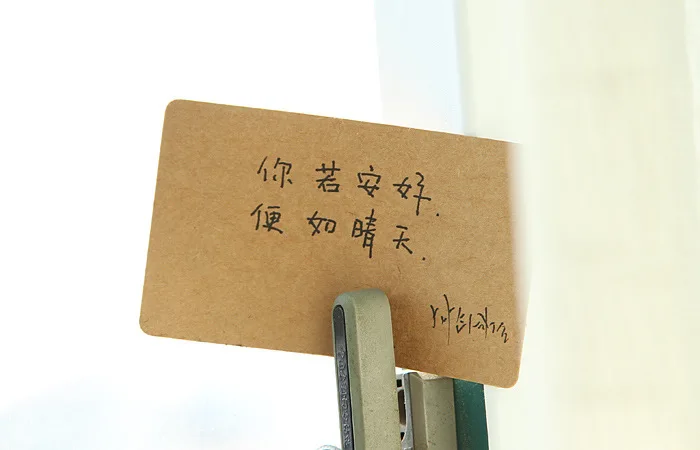 你若安好.
便如晴天.